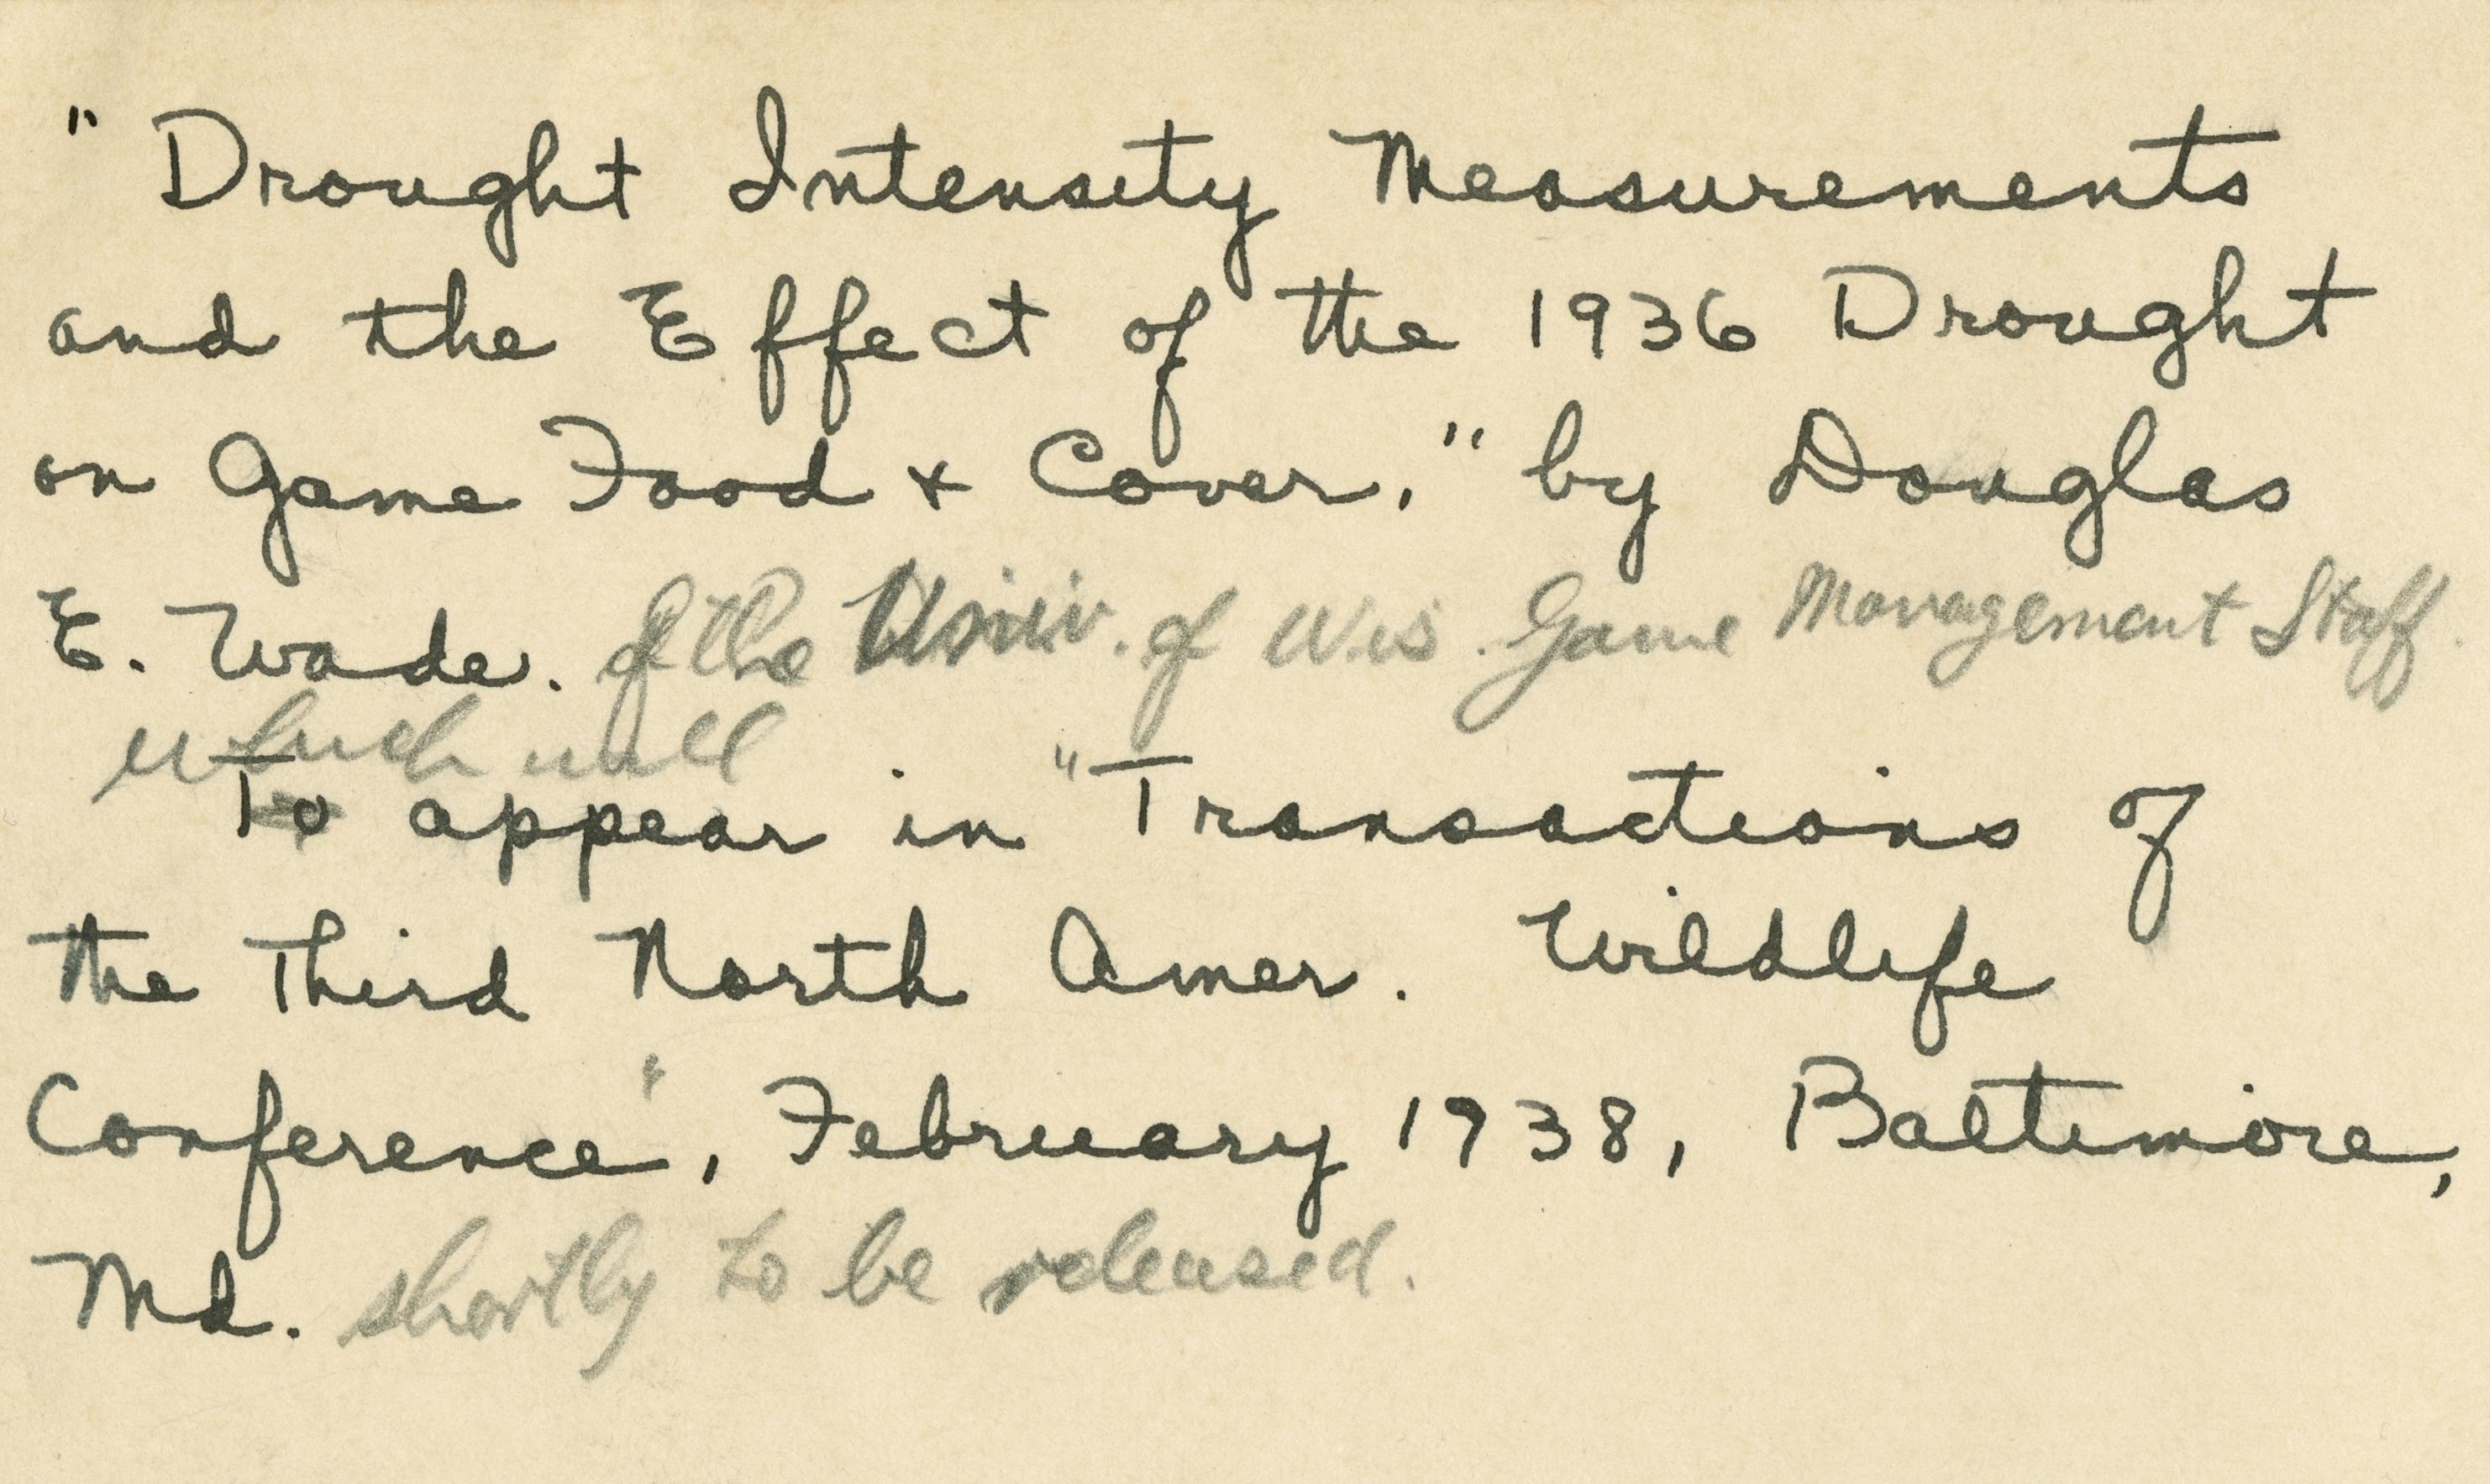 "Drought Intensity Measurements
and the Effect of the 1936 Drought
on Game Food + Cover." by Douglas
E. Wade. of the Univ. of Wis. Game Management Staff.
which will
To appear in "Transactions of
the Third North Amer. Wildlife
Conference", February 1938, Baltimore,
Md. shortly to be released.